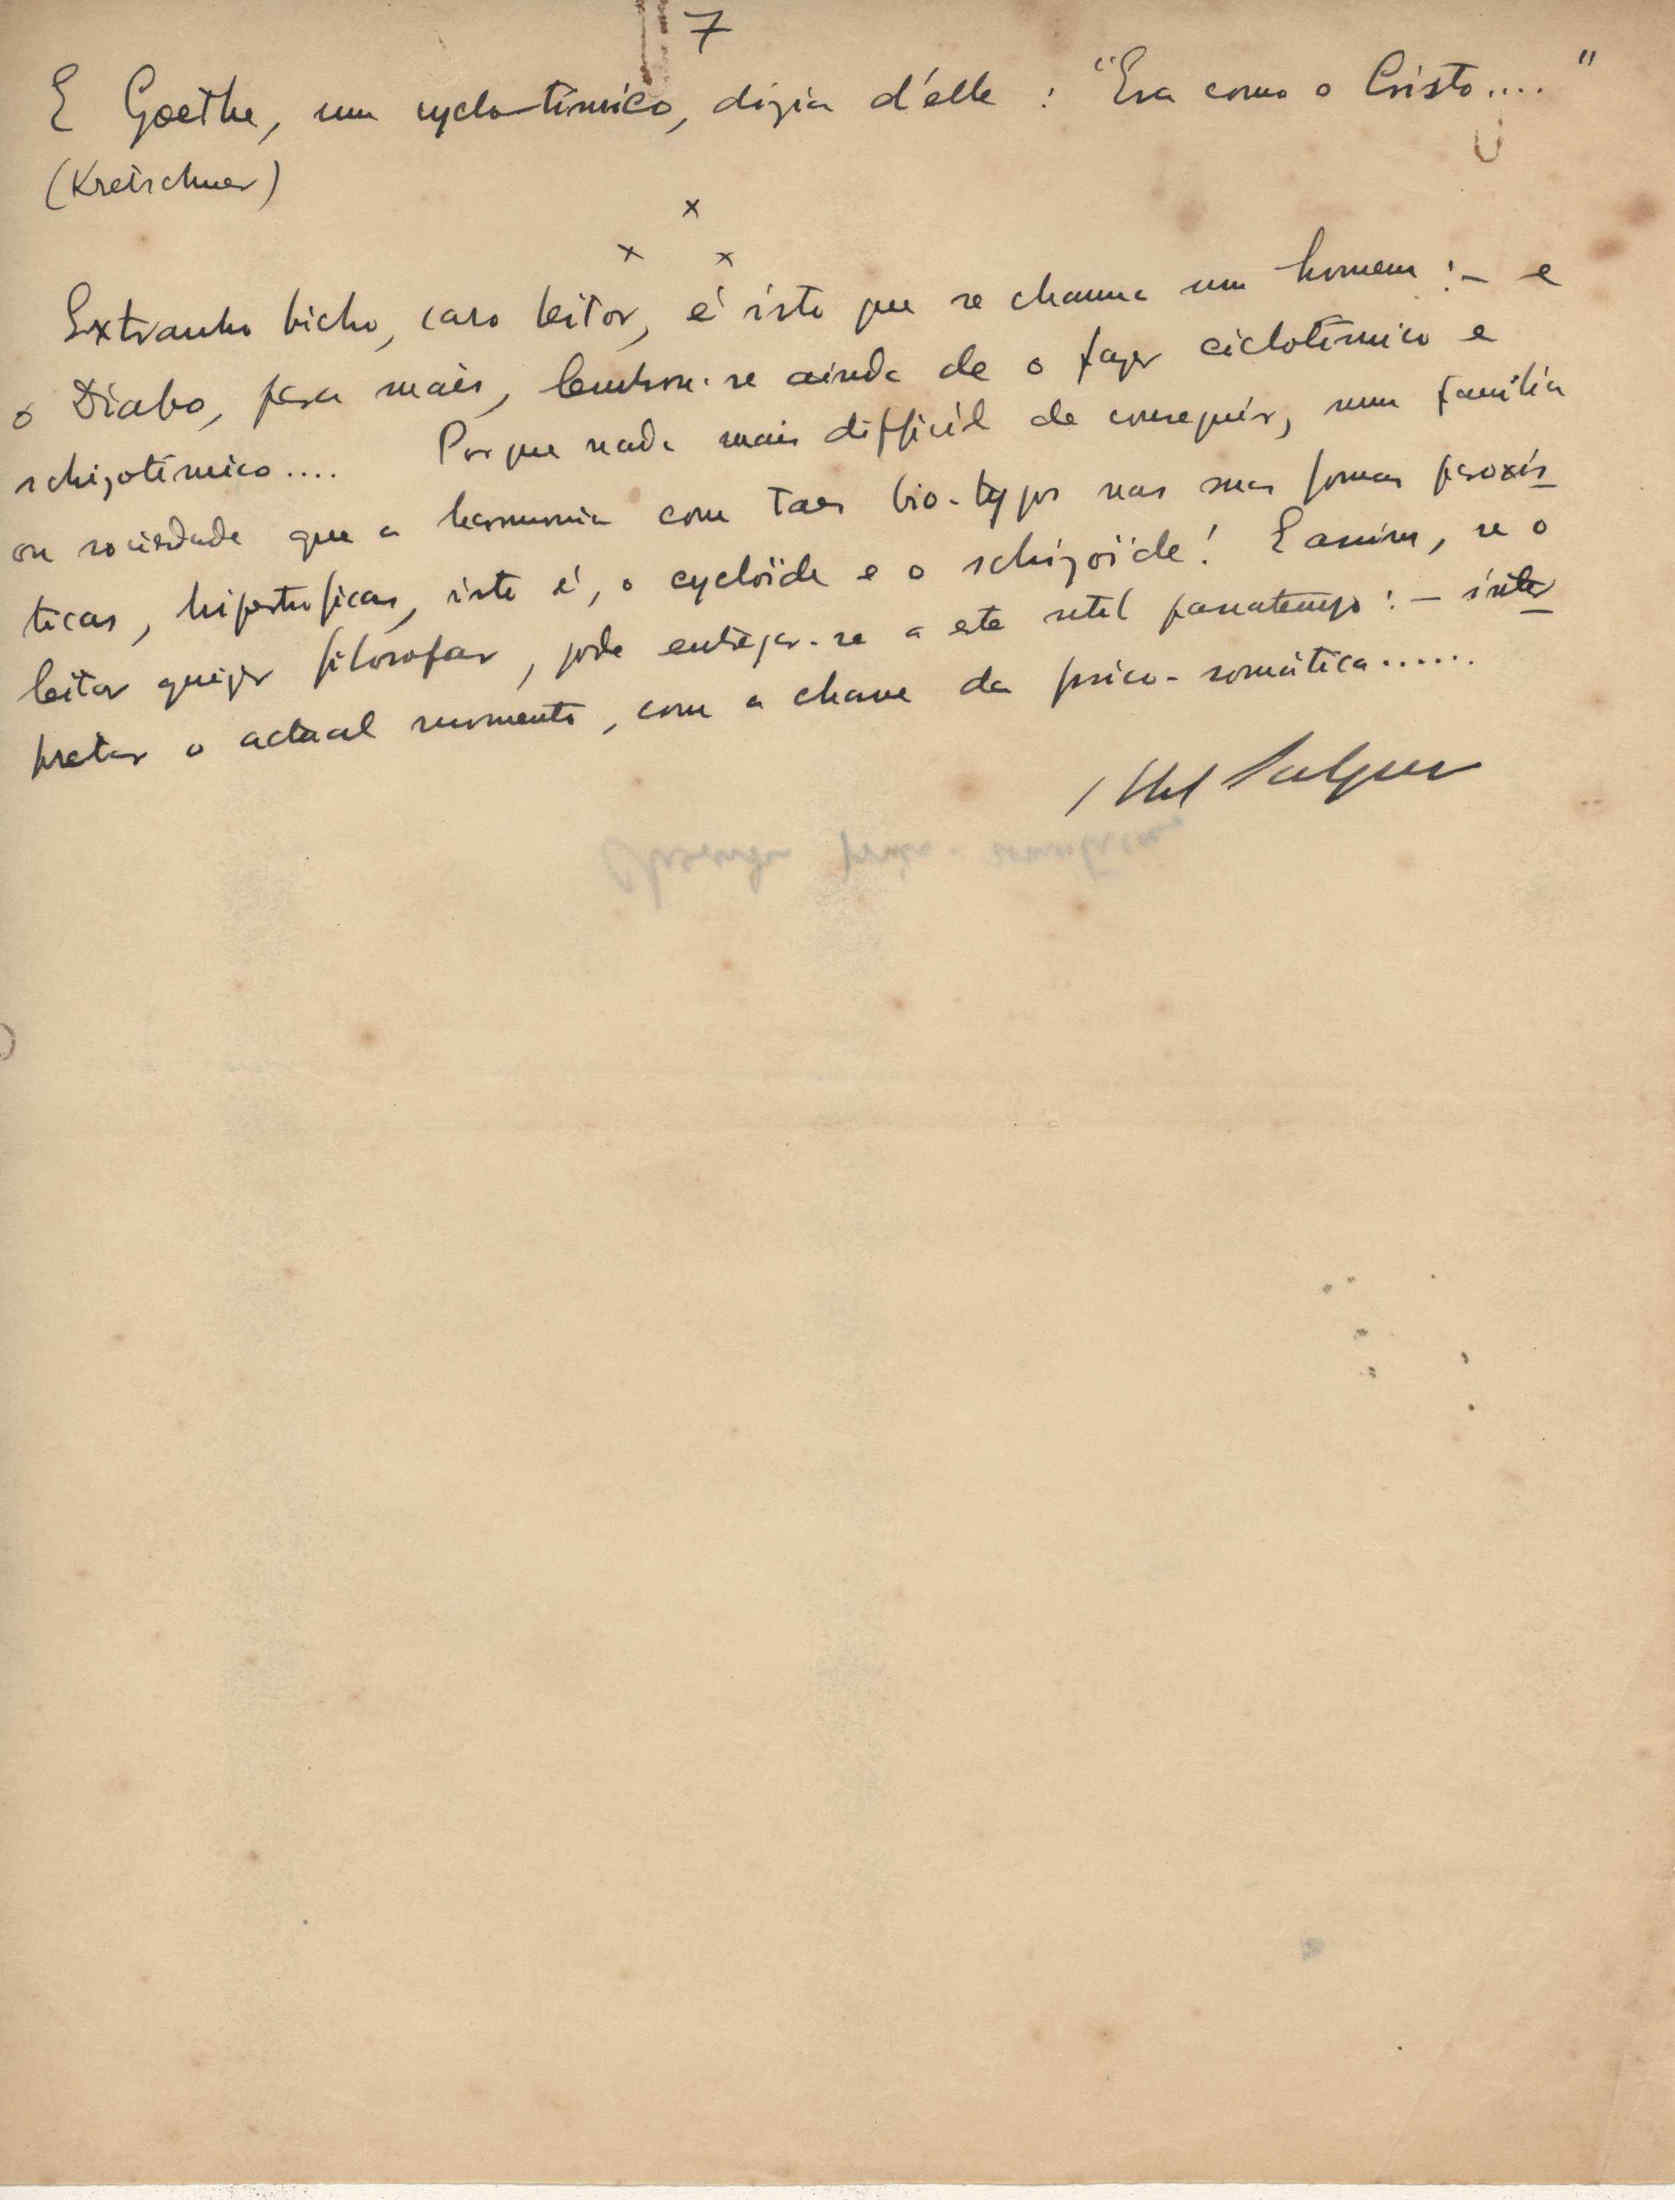 7
E Goethe, um cyclo-tímico, dizia d'élle : "Era como o Cristo...."
(Kretschmer)
x
x x
Extranho bicho, caro leitor, é isto que se chama um homem :- e
o Diabo, para mais, lembrou-se ainda de o fazer ciclotímico e
schizotímico.... Porque nada mais difficil de conseguir, numa familia
ou sociedade que a harmonia com taes bio-typos nas suas formas paroxís
ticas, hipertroficas, isto é, o cyclóïde e o schizoïde! E assim, se o
leitor quizer filosofar, pode entregar-se a este util passatempo : - inter
pretar o actual momento, com a chave da psico-somática......